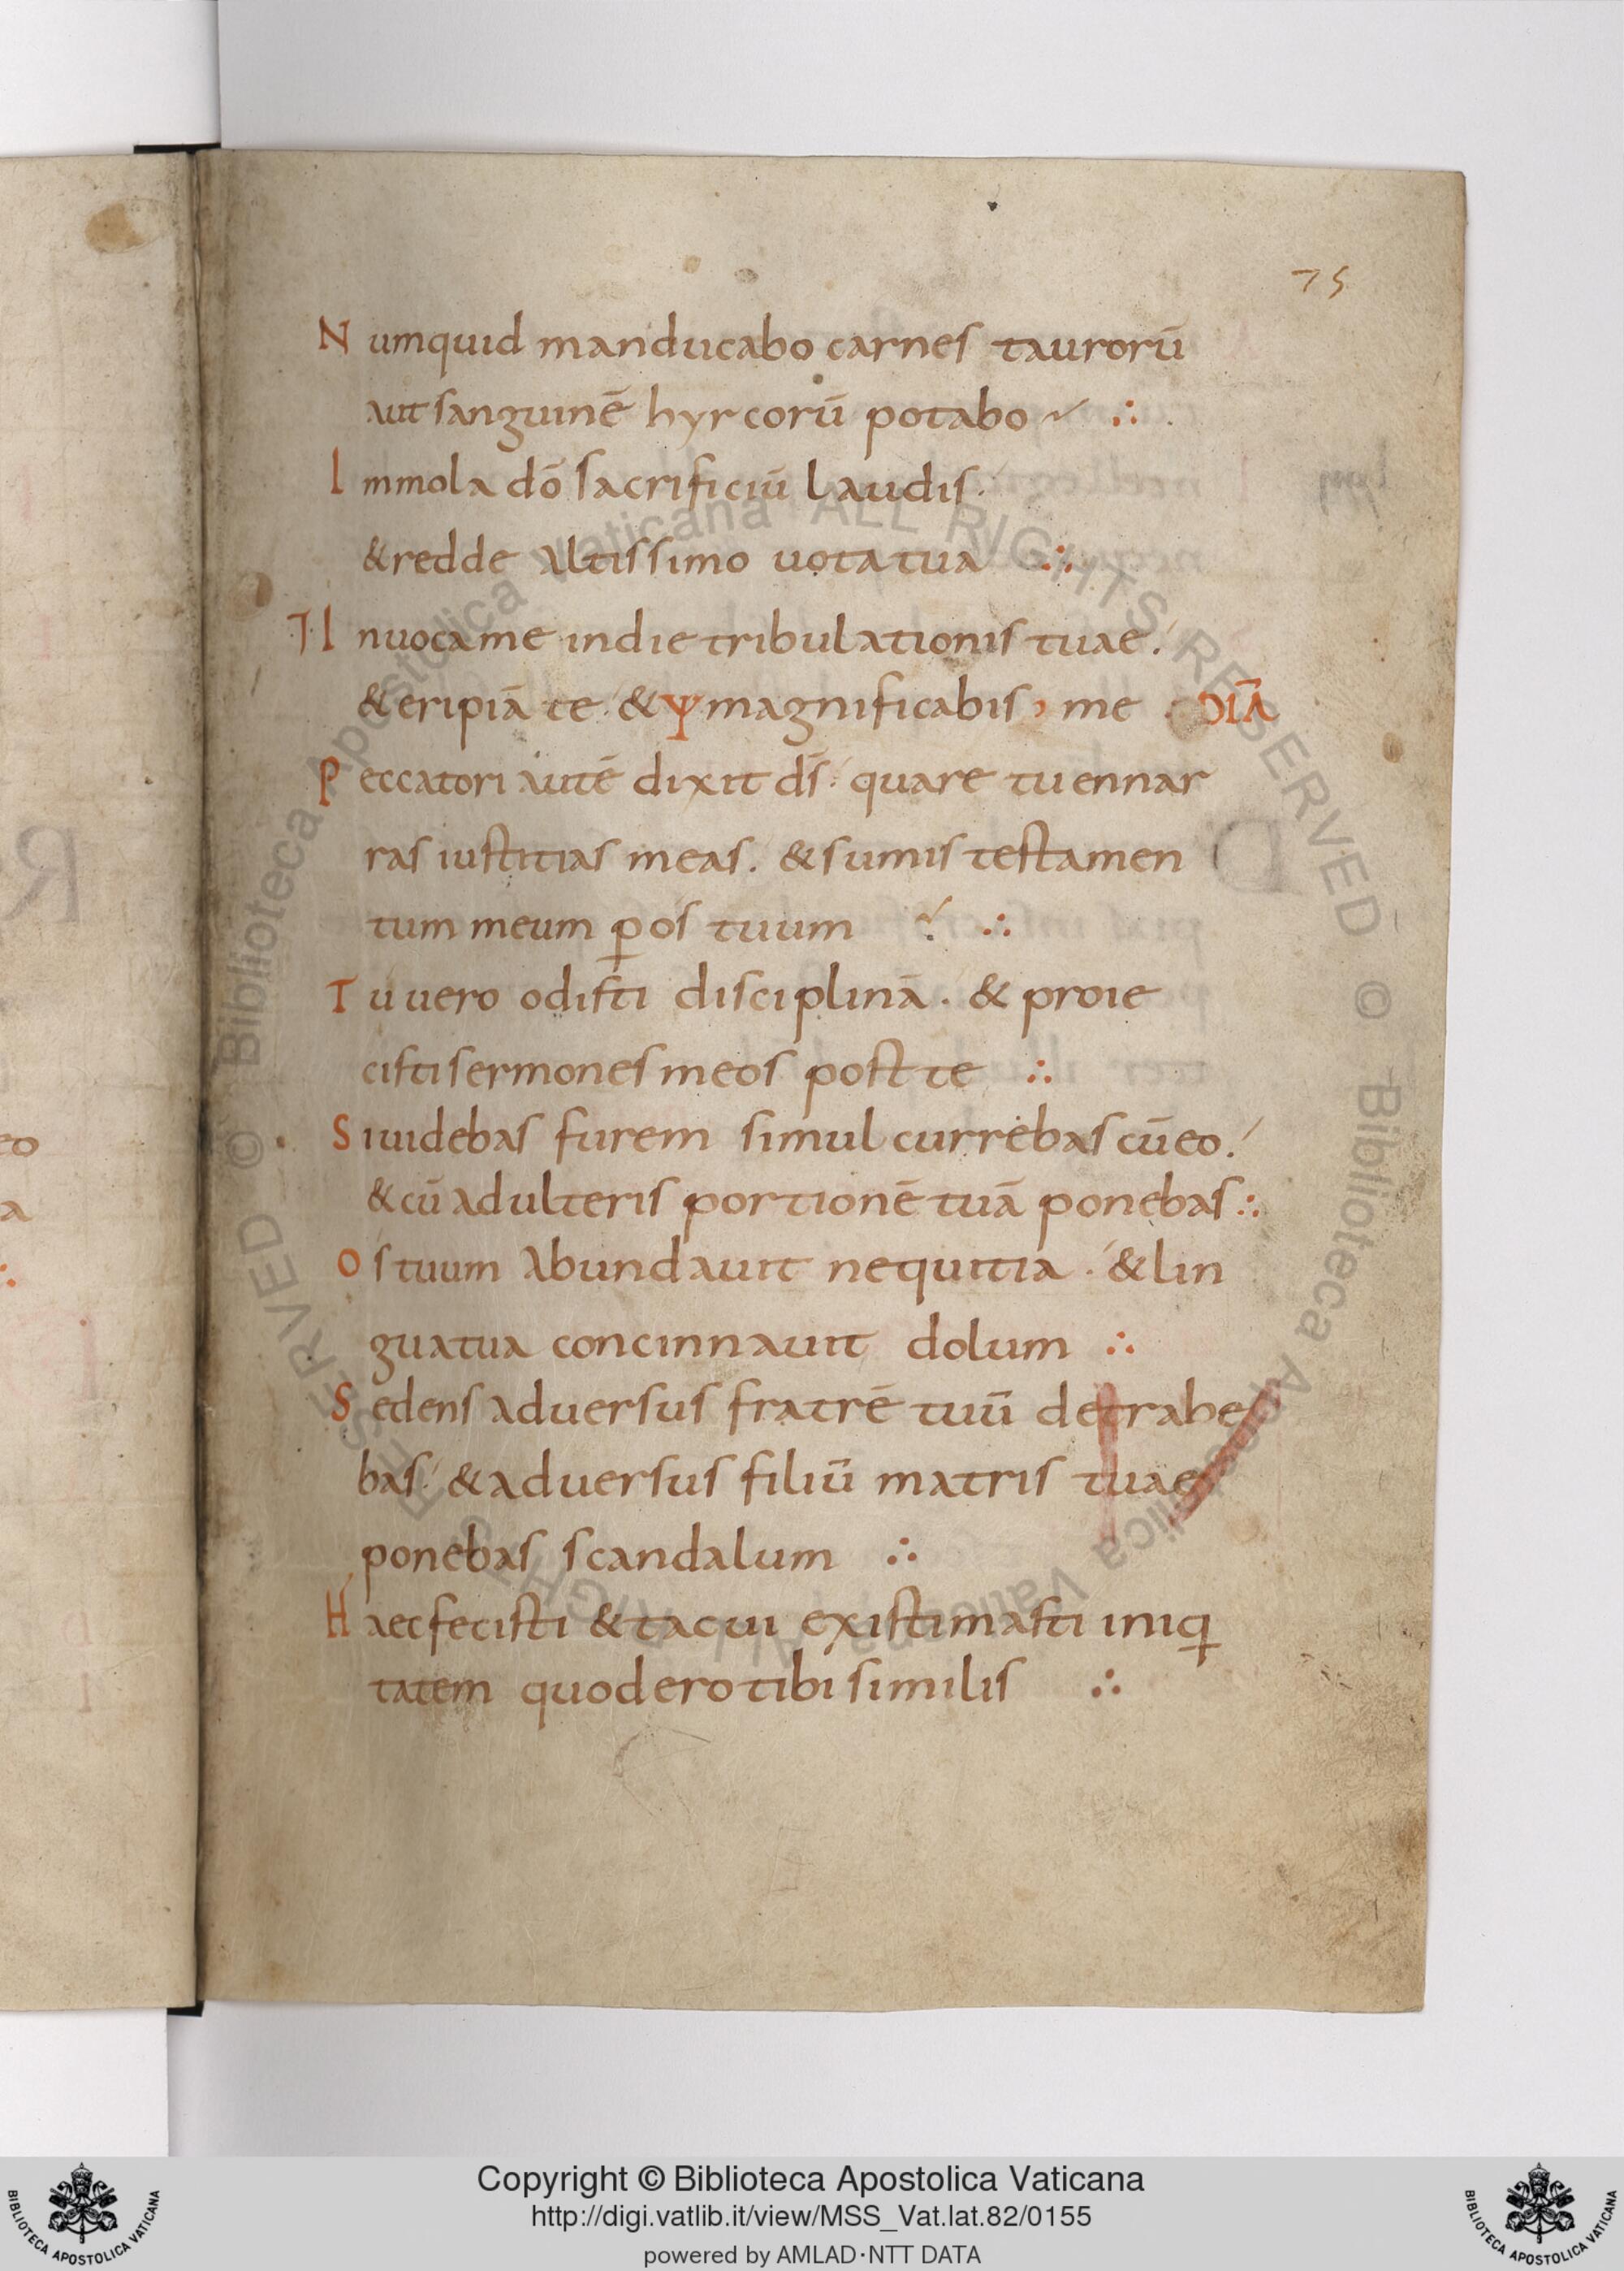 75
Numquid manducabo carnes taurorū
aut sanguinē hyrcorū potabo ∴
Immola dō sacrificiū laudis.
& redde altissimo uota tua ∴
Inuoca me in die tribulationis tuae.
& eripiā te. & ψ magnificabis me
Peccatori autē dixit ds̄. quare tu ennar
ras iustitias meas. & sumis testamen
tum meum ꝑ os tuum ∴
Tu uero odisti disciplinā. & proie
cisti sermones meos post te ∴
Si uidebas furem simul currebas cū eo.
& cū adulteris portionē tuā ponebas ∴
Os tuum abundauit nequitia. & lin
gua tua concinnauit dolum ∴
Sedens aduersus fratrē tuū detrahe
bas. & aduersus filiū matris tuae
ponebas scandalum ∴
Haec fecisti & tacui existimasti iniq
tatem quod ero tibi similis ∴
eo
a
Copyright © Biblioteca Apostolica Vaticana
http://digi.vatlib.it/view/MSS_Vat.lat.82/0155
powered by AMLAD·NTT DATA
BIBLIOTECA APOSTOLICA VATICANA
BIBLIOTECA APOSTOLICA VATICANA
© Biblioteca Apostolica Vaticana ALL RIGHTS RESERVED
© Biblioteca Apostolica Vaticana ALL RIGHTS RESERVED